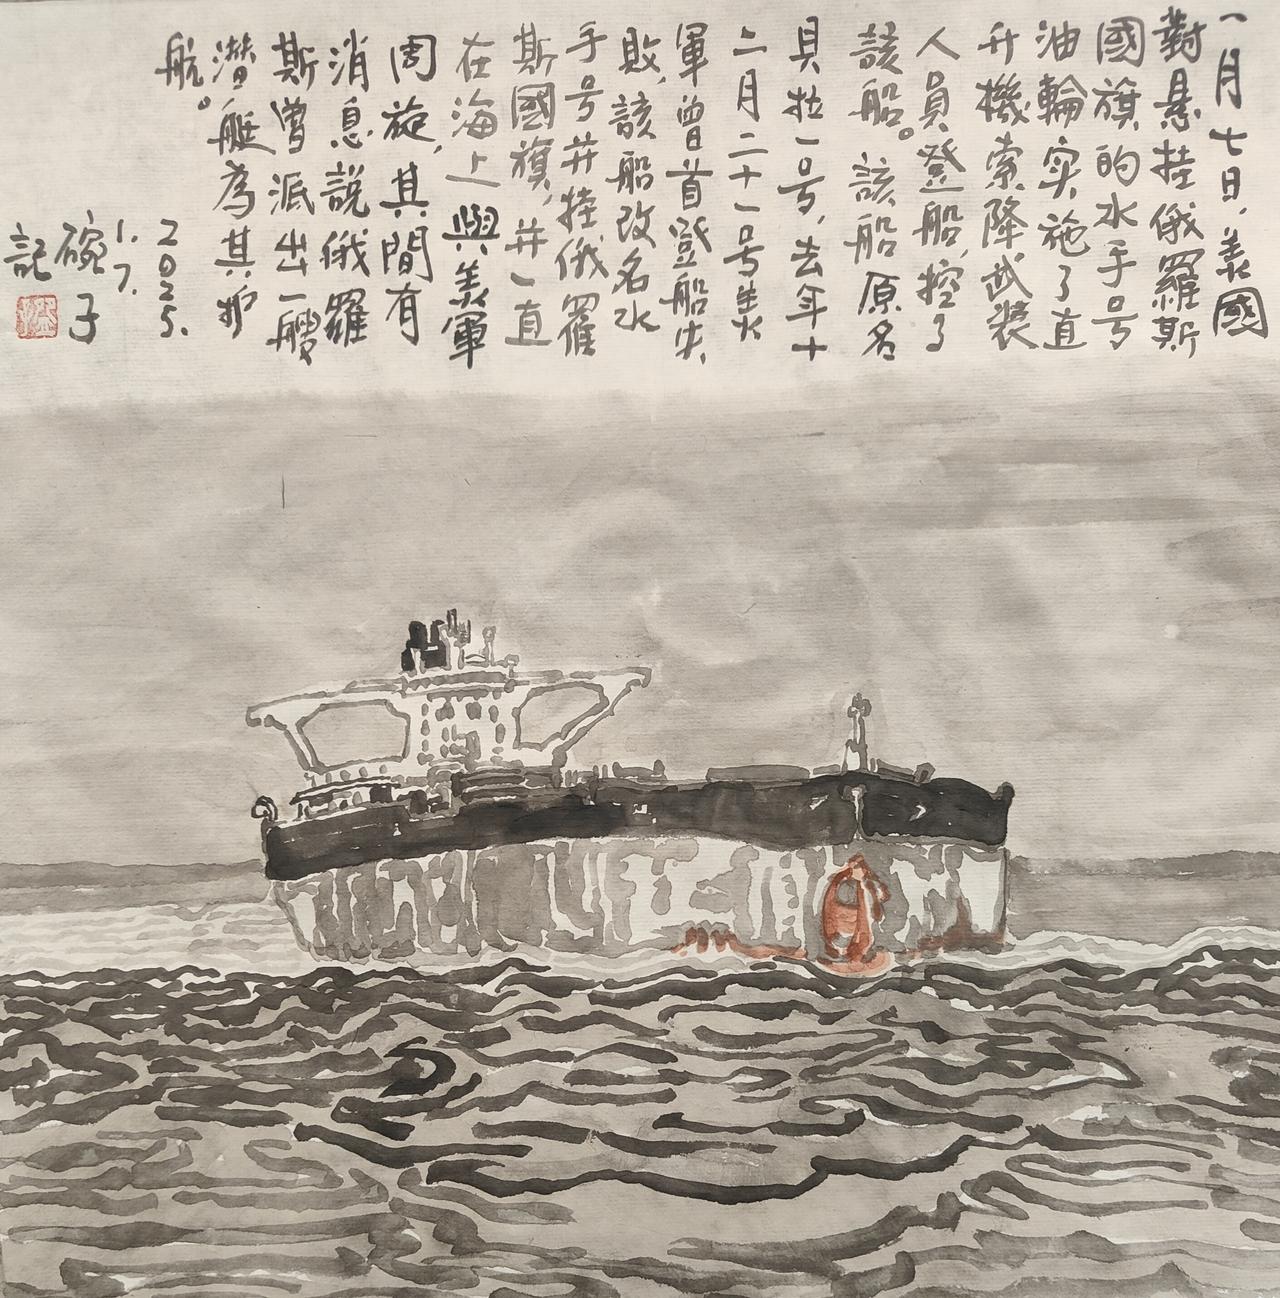 一月七日，美國
對悬挂俄羅斯
國旗的水手号
油輪实施了直
升機索降武装
人員登船，控了
該船。該船原名
貝拉一号，去年十
二月二十一号美
軍曾首登船失
敗，該船改名水
手号并挂俄羅
斯國旗，并一直
在海上與美軍
周旋，其間有
消息説俄羅
斯曾派出一艘
潜艇為其护
航。
2025.
1.7.
碗子
記